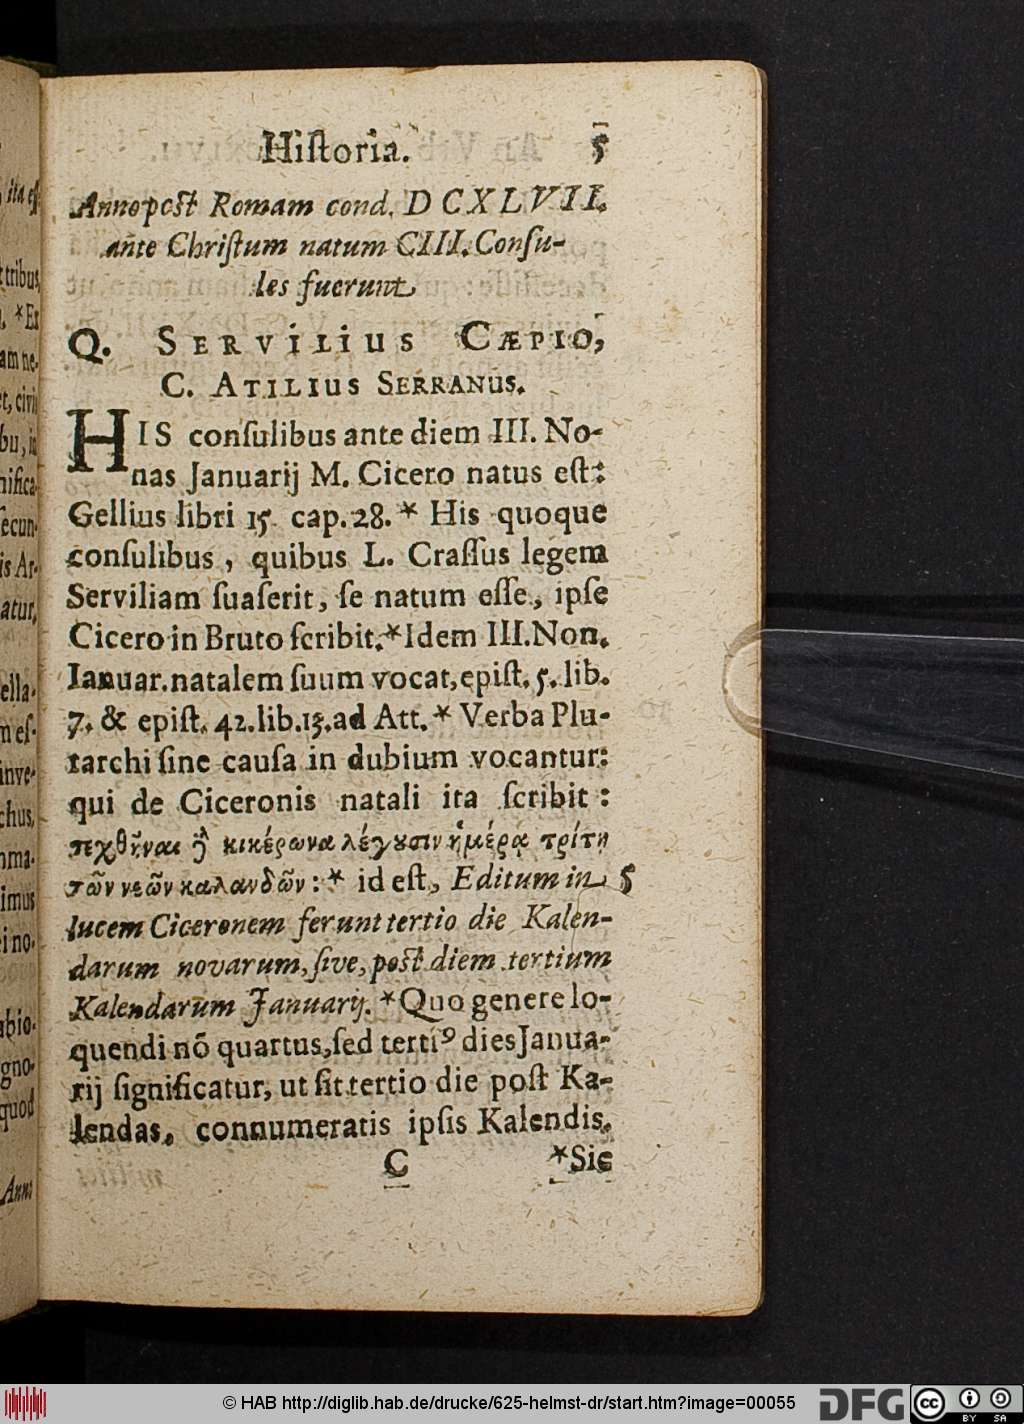 Hiſtoria. 5
Anno poſt Romam cond. DCXLVII.
ante Chriſtum natum CIII. Conſu-
les fuerunt
Q. SERVILIUS CÆPIO,
C. ATILIUS SERRANUS.
HIS conſulibus ante diem III. No-
nas Januarij M. Cicero natus eſt:
Gellius libri 15 cap. 28. * His quoque
conſulibus, quibus L. Craſſus legem
Serviliam ſuaſerit, ſe natum eſſe, ipſe
Cicero in Bruto ſcribit. * Idem III. Non.
Ianuar. natalem ſuum vocat, epiſt. 5. lib.
7. & epiſt. 42. lib. 13. ad Att. * Verba Plu-
tarchi ſine cauſa in dubium vocantur:
qui de Ciceronis natali ita ſcribit:
τεχθῆναι ἢ κικέρωνα λέγουσιν ἡμέρᾳ τρίτῃ
τῶν νεῶν καλανδῶν: * id eſt, Editum in 5
lucem Ciceronem ferunt tertio die Kalen-
darum novarum, ſive, poſt diem tertium
Kalendarum Januarij. * Quo genere lo-
quendi nō quartus, ſed tertiꝰ dies Janua-
rij ſignificatur, ut ſit tertio die poſt Ka-
lendas, connumeratis ipſis Kalendis.
C *Sic
ita eſſ
tribus,
*Ex
am ne-
t, civi
bu, in
nifica-
ſecun-
is Ar-
atur,
ella-
m eſ-
inve-
chus,
mma-
imus
ei no-
abio-
gno-
quod
Anno
© HAB http://diglib.hab.de/drucke/625-helmst-dr/start.htm?image=00055
DFG
cc
BY SA